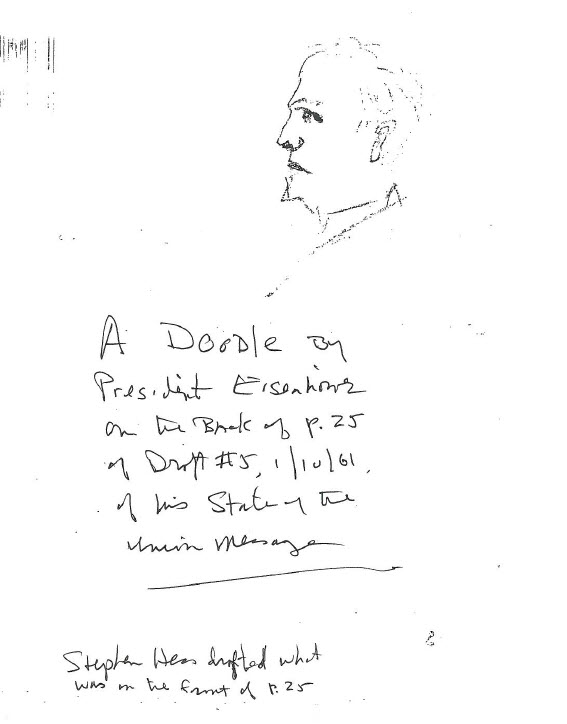 A Doodle by
President Eisenhower
on the Back of p. 25
of Draft #5, 1/10/61,
of his State of the
Union Message
Stephen Hess drafted what
was on the front of p. 25